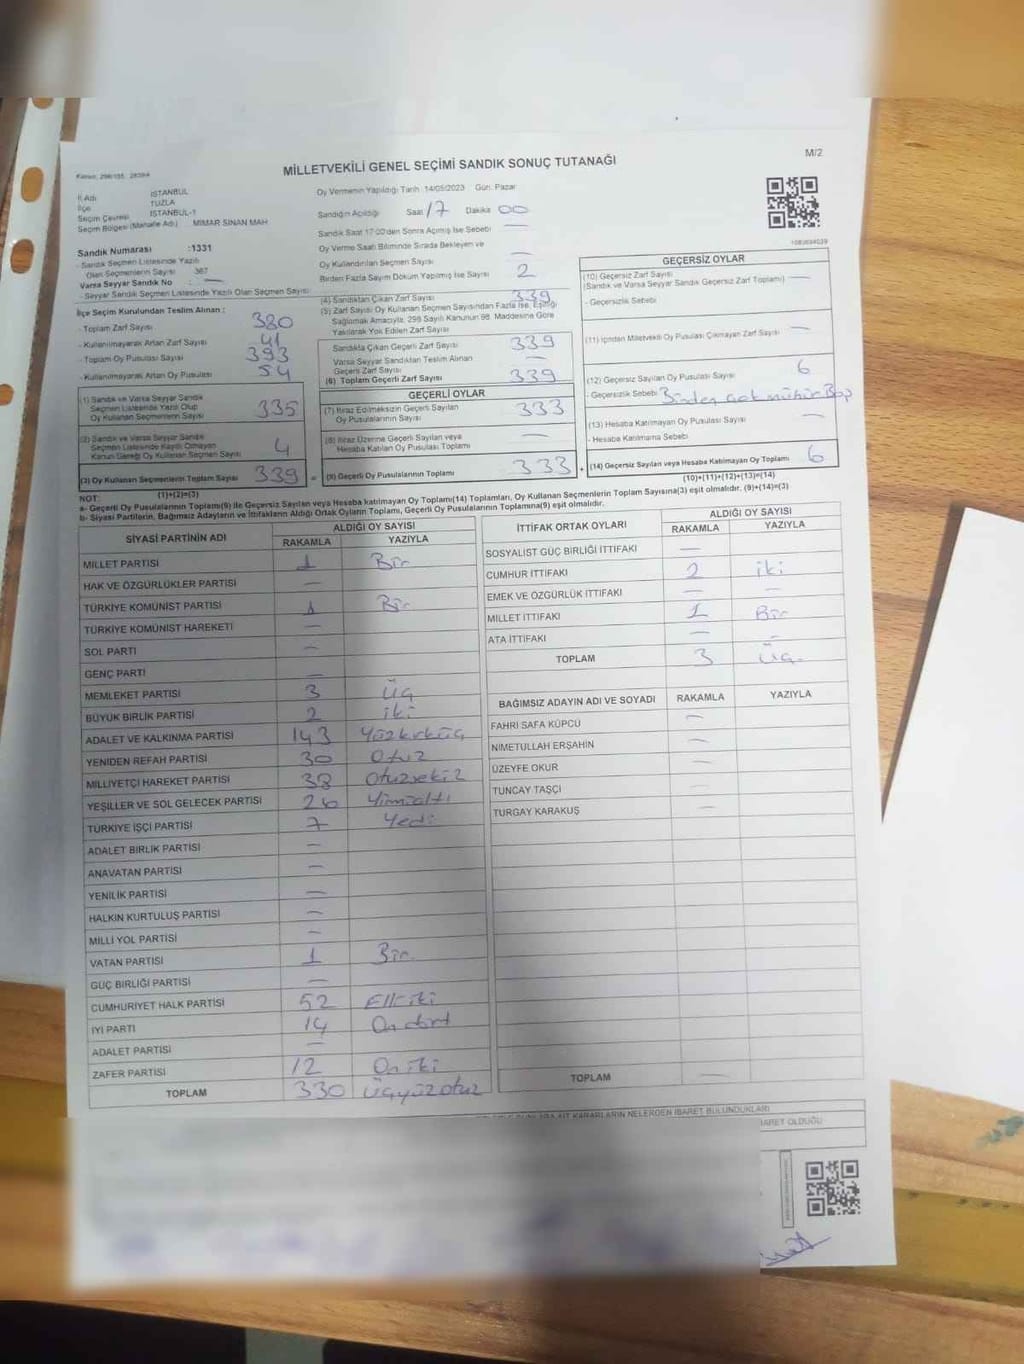 MİLLETVEKİLİ GENEL SEÇİMİ SANDIK SONUÇ TUTANAĞI
M/2
İl Adı İSTANBUL
İlçe TUZLA
Seçim Çevresi İSTANBUL-1
Seçim Bölgesi (Mahalle Adı) MİMAR SİNAN MAH
Sandık Numarası :1331
- Sandık Seçmen Listesinde Yazılı
Olan Seçmenlerin Sayısı 367
Varsa Seyyar Sandık No : —
- Seyyar Sandık Seçmen Listesinde Yazılı Olan Seçmen Sayısı
İlçe Seçim Kurulundan Teslim Alınan :
- Toplam Zarf Sayısı 380
- Kullanılmayarak Artan Zarf Sayısı 41
- Toplam Oy Pusulası Sayısı 393
- Kullanılmayarak Artan Oy Pusulası 54
(1) Sandık ve Varsa Seyyar Sandık
Seçmen Listesinde Yazılı Olup
Oy Kullanan Seçmenlerin Sayısı 335
(2) Sandık ve Varsa Seyyar Sandık
Seçmen Listesinde Kayıtlı Olmayan
Kanun Gereği Oy Kullanan Seçmen Sayısı 4
(3) Oy Kullanan Seçmenlerin Toplam Sayısı 339
(1)+(2)=(3)
Oy Vermenin Yapıldığı Tarih 14/05/2023 Gün: Pazar
Sandığın Açıldığı Saat 17 Dakika 00
Sandık Saat 17:00'den Sonra Açılmış İse Sebebi —
Oy Verme Saati Bitiminde Sırada Bekleyen ve
Oy Kullandırılan Seçmen Sayısı —
Birden Fazla Sayım Döküm Yapılmış İse Sayısı 2
(4) Sandıktan Çıkan Zarf Sayısı 339
(5) Zarf Sayısı Oy Kullanan Seçmen Sayısından Fazla İse, Eşitliği
Sağlamak Amacıyla, 298 Sayılı Kanunun 98. Maddesine Göre
Yakılarak Yok Edilen Zarf Sayısı
Sandıkta Çıkan Geçerli Zarf Sayısı 339
Varsa Seyyar Sandıktan Teslim Alınan
Geçerli Zarf Sayısı —
(6) Toplam Geçerli Zarf Sayısı 339
GEÇERLİ OYLAR
(7) İtiraz Edilmeksizin Geçerli Sayılan
Oy Pusulalarının Sayısı 333
(8) İtiraz Üzerine Geçerli Sayılan veya
Hesaba Katılan Oy Pusulası Toplamı —
(9) Geçerli Oy Pusulalarının Toplamı 333
GEÇERSİZ OYLAR
(10) Geçersiz Zarf Sayısı
(Sandık ve Varsa Seyyar Sandık Geçersiz Zarf Toplamı) —
- Geçersizlik Sebebi
(11) İçinden Milletvekili Oy Pusulası Çıkmayan Zarf Sayısı —
(12) Geçersiz Sayılan Oy Pusulası Sayısı 6
- Geçersizlik Sebebi Birden çok mühür
(13) Hesaba Katılmayan Oy Pusulası Sayısı —
- Hesaba Katılmama Sebebi
(14) Geçersiz Sayılan veya Hesaba Katılmayan Oy Toplamı 6
(10)+(11)+(12)+(13)=(14)
NOT:
a- Geçerli Oy Pusulalarının Toplamı(9) ile Geçersiz Sayılan veya Hesaba katılmayan Oy Toplamı(14) Toplamları, Oy Kullanan Seçmenlerin Toplam Sayısına(3) eşit olmalıdır. (9)+(14)=(3)
b- Siyasi Partilerin, Bağımsız Adayların ve İttifakların Aldığı Ortak Oyların Toplamı, Geçerli Oy Pusulalarının Toplamına(9) eşit olmalıdır.
SİYASİ PARTİNİN ADI ALDIĞI OY SAYISI
RAKAMLA YAZIYLA
MİLLET PARTİSİ 1 Bir
HAK VE ÖZGÜRLÜKLER PARTİSİ —
TÜRKİYE KOMÜNİST PARTİSİ 1 Bir
TÜRKİYE KOMÜNİST HAREKETİ —
SOL PARTİ —
GENÇ PARTİ —
MEMLEKET PARTİSİ 3 Üç
BÜYÜK BİRLİK PARTİSİ 2 iki
ADALET VE KALKINMA PARTİSİ 143 Yüzkırküç
YENİDEN REFAH PARTİSİ 30 Otuz
MİLLİYETÇİ HAREKET PARTİSİ 38 Otuzsekiz
YEŞİLLER VE SOL GELECEK PARTİSİ 26 Yirmialtı
TÜRKİYE İŞÇİ PARTİSİ 7 Yedi
ADALET BİRLİK PARTİSİ —
ANAVATAN PARTİSİ —
YENİLİK PARTİSİ —
HALKIN KURTULUŞ PARTİSİ —
MİLLİ YOL PARTİSİ —
VATAN PARTİSİ 1 Bir
GÜÇ BİRLİĞİ PARTİSİ —
CUMHURİYET HALK PARTİSİ 52 Elliiki
İYİ PARTİ 14 On dört
ADALET PARTİSİ —
ZAFER PARTİSİ 12 On iki
TOPLAM 330 Üçyüzotuz
İTTİFAK ORTAK OYLARI ALDIĞI OY SAYISI
RAKAMLA YAZIYLA
SOSYALİST GÜÇ BİRLİĞİ İTTİFAKI —
CUMHUR İTTİFAKI 2 iki
EMEK VE ÖZGÜRLÜK İTTİFAKI — —
MİLLET İTTİFAKI 1 Bir
ATA İTTİFAKI — —
TOPLAM 3 Üç
BAĞIMSIZ ADAYIN ADI VE SOYADI RAKAMLA YAZIYLA
FAHRİ SAFA KÜPCÜ —
NİMETULLAH ERŞAHİN —
ÜZEYFE OKUR —
TUNCAY TAŞÇI —
TURGAY KARAKUŞ —
TOPLAM —
AİT KARARLARIN NELERDEN İBARET BULUNDUKLARI
İBARET OLDUĞU